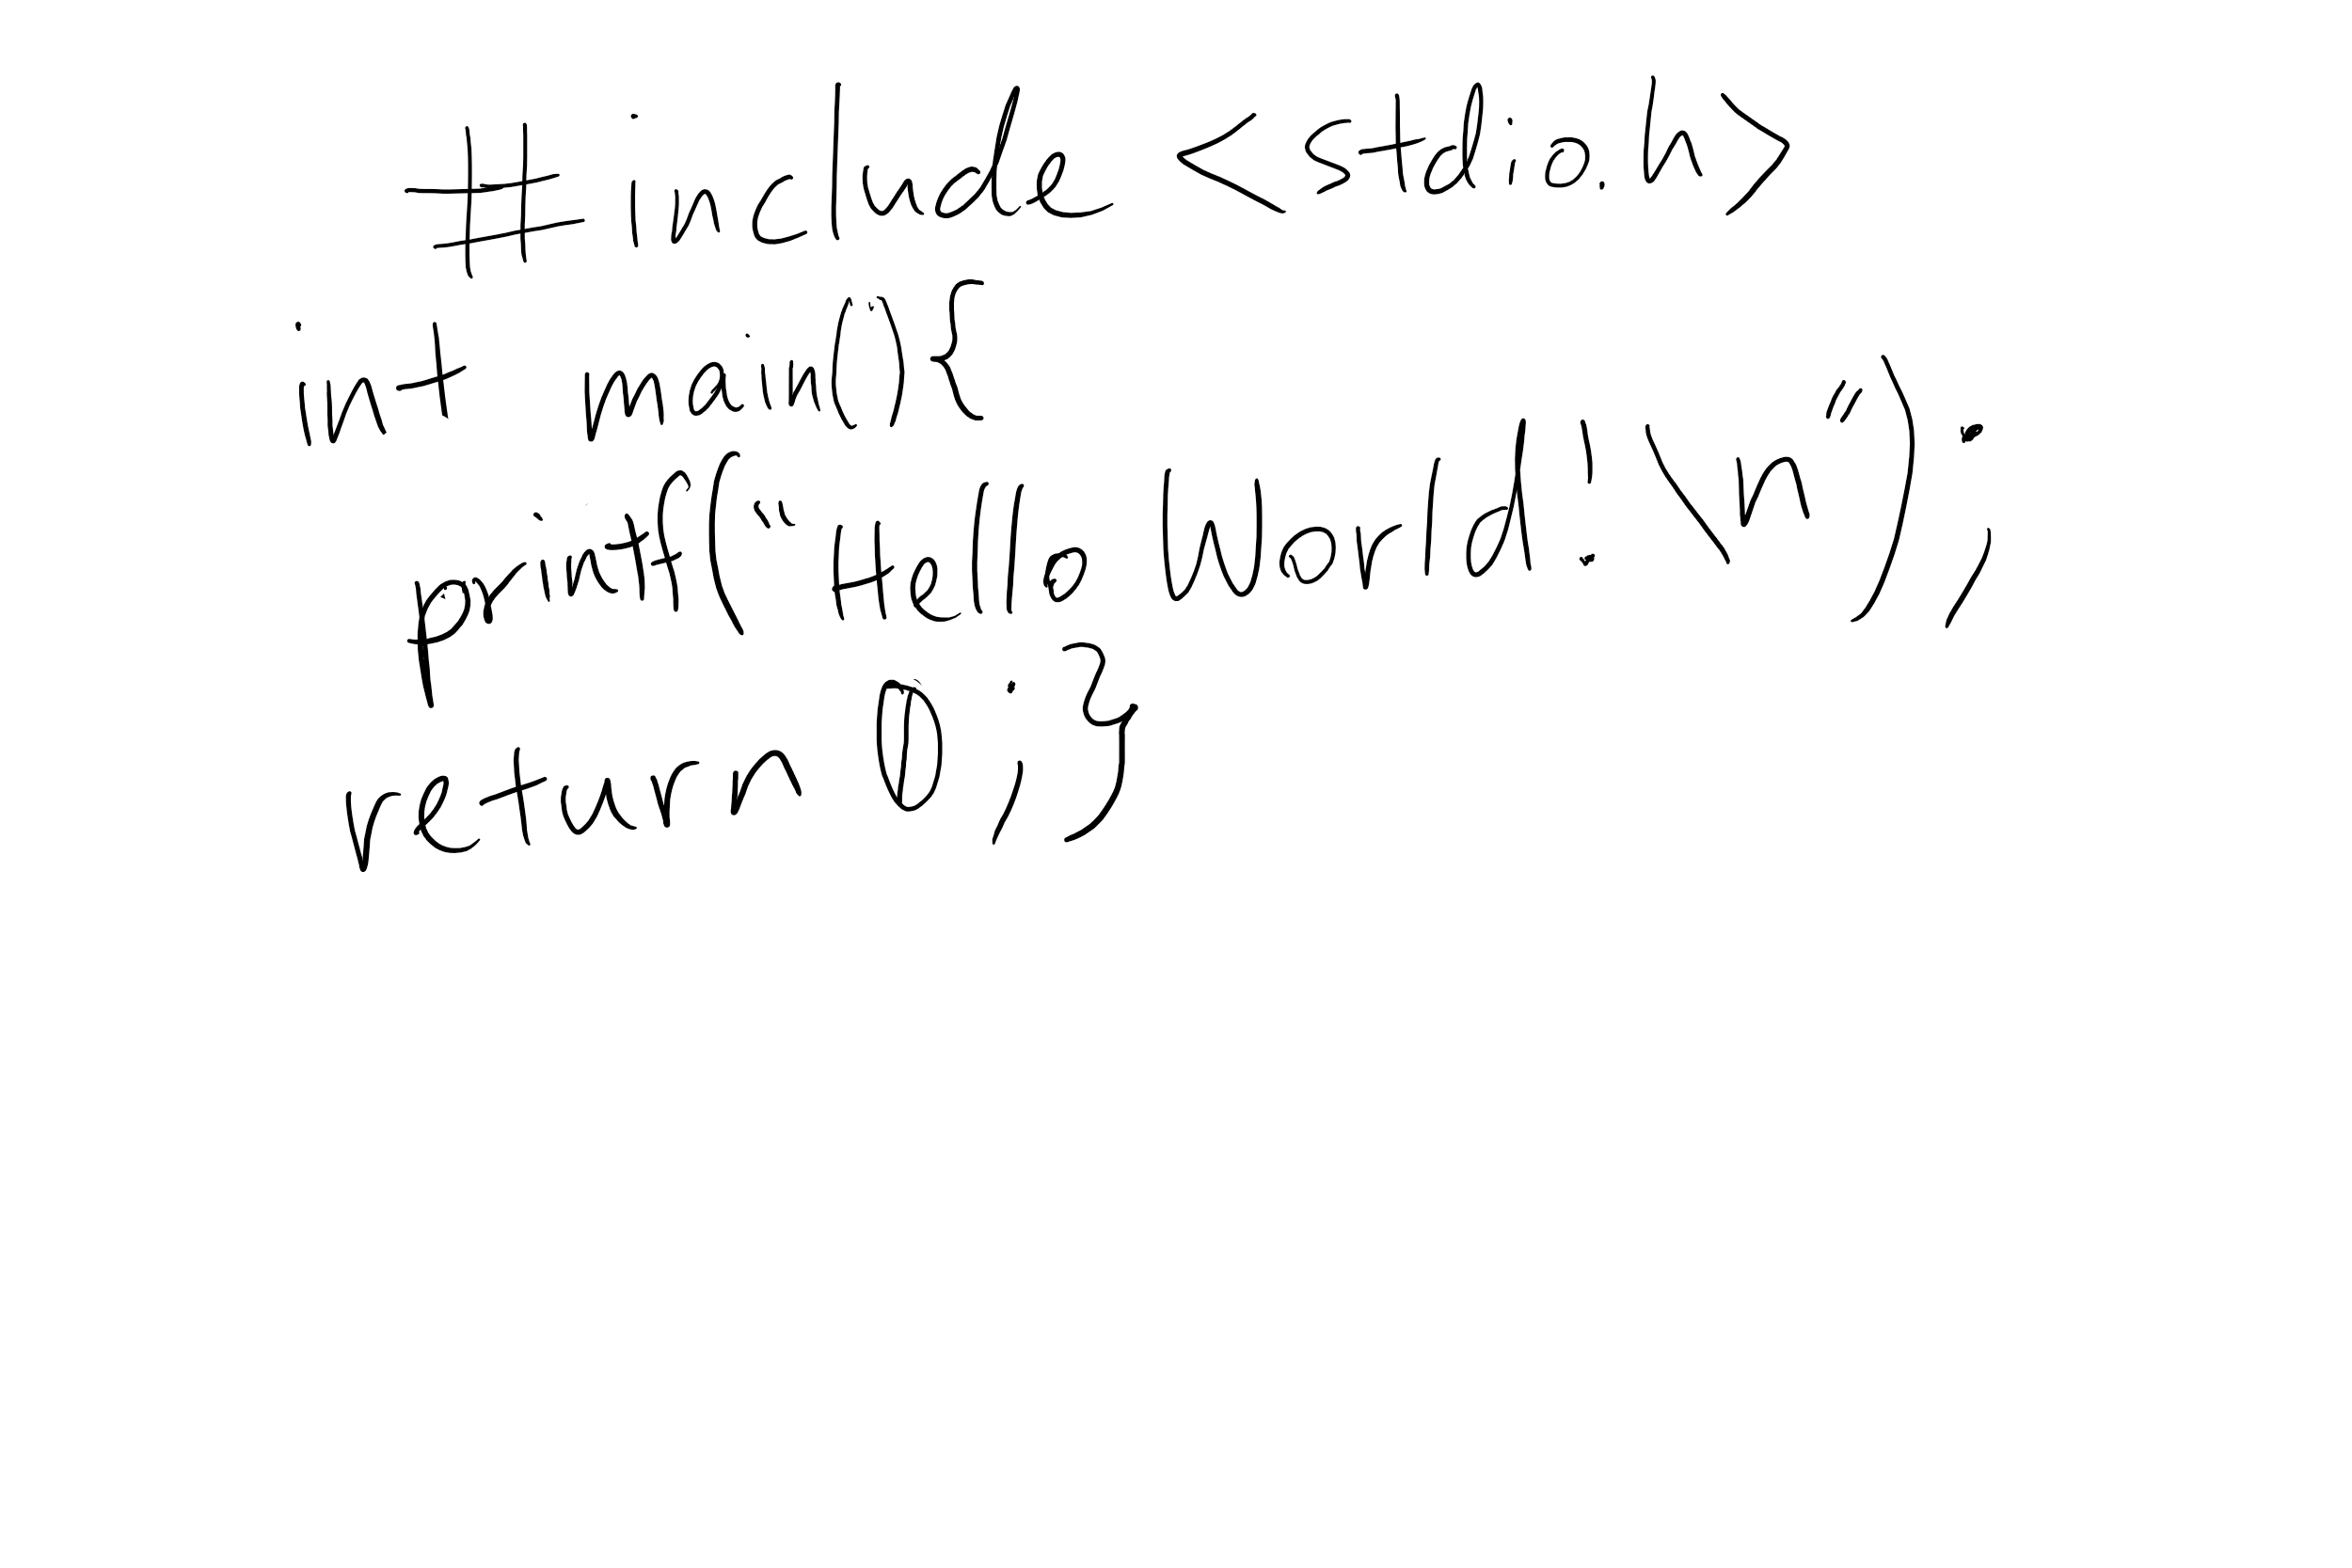 #include <stdio.h>
int main(){
printf("Hello World!\n");
return 0;}